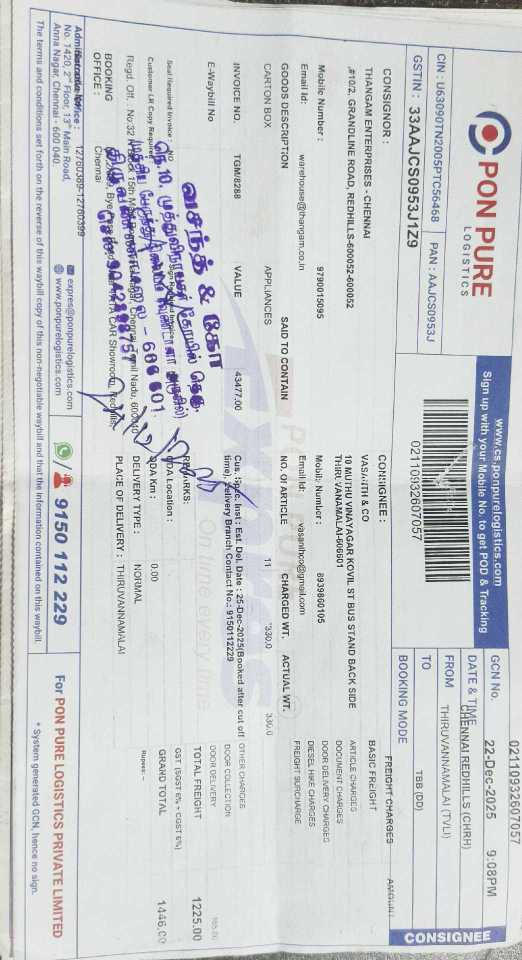 PON PURE
LOGISTICS
www.cs.ponpurelogistics.com
Sign up with your Mobile No. to get POD & Tracking
CIN : U63090TN2005PTC56468 PAN : AAJCS0953J
GSTIN : 33AAJCS0953J1Z9
02110932607057
GCN No. 02110932607057
DATE & TIME 22-Dec-2025 9:08PM
FROM CHENNAI REDHILLS (CHRH)
TO THIRUVANNAMALAI (TVLI)
BOOKING MODE TBB (DD)
CONSIGNEE
CONSIGNOR :
THANGAM ENTERPRISES - CHENNAI
,#10/2, GRANDLINE ROAD, REDHILLS-600052-600052
Mobile Number : 9790015095
Email Id: warehouse@thangam.co.in
CONSIGNEE :
VASANTH & CO
10 MUTHU VINAYAGAR KOVIL ST BUS STAND BACK SIDE
THIRUVANAMALAI-606601
Mobile Number : 8939860105
Email Id: vasanthco@gmail.com
FREIGHT CHARGES AMOUNT
BASIC FREIGHT
ARTICLE CHARGES
DOCUMENT CHARGES
DOOR DELIVERY CHARGES
DIESEL HIKE CHARGES
FREIGHT SURCHARGE
OTHER CHARGES
DOOR COLLECTION
DOOR DELIVERY
TOTAL FREIGHT 1225.00
GST (SGST 6% + CGST 6%)
GRAND TOTAL 1446.00
Rupees: -
GOODS DESCRIPTION SAID TO CONTAIN NO. OF ARTICLE CHARGED WT. ACTUAL WT.
CARTON BOX APPLIANCES 11 330.0 330.0
INVOICE NO. TGM/8288 VALUE 43477.00
E-Waybill No
Cus. Spec. Inst : Est. Del. Date : 25-Dec-2025(Booked after cut off
time), Delivery Branch Contact No.: 9150112229
REMARKS:
ODA Location :
ODA Km : 0.00
DELIVERY TYPE : NORMAL
PLACE OF DELIVERY : THIRUVANNAMALAI
Seal Required Invoice : NO
Customer LR Copy Required
வசந்த் & கோ
நெ.10, முத்து விநாயகர் கோயில் தெரு,
திருவண்ணாமலை - 606 601.
Regd. Off. : No:32
BOOKING
OFFICE :
Chennai
Administrative Office :
No. 1420, 2nd Floor, 13th Main Road,
Anna Nagar, Chennai - 600 040.
12760389-12760399
expres@ponpurelogistics.com
www.ponpurelogistics.com
9150 112 229
For PON PURE LOGISTICS PRIVATE LIMITED
The terms and conditions set forth on the reverse of this waybill copy of this non-negotiable waybill and that the information contained on this waybill.
* System generated GCN, hence no sign.